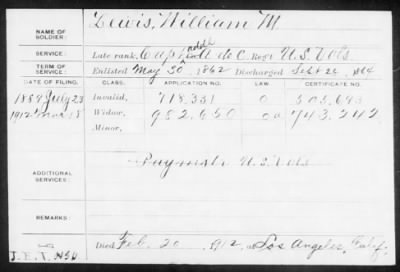 NAME OF SOLDIER: Lewis, William M.
SERVICE: Late rank, Capt & addl A de C, Regt U.S. Vols
Enlisted May 30 1862 Discharged Sept 26 1864
DATE OF FILING. CLASS. APPLICATION NO. LAW. CERTIFICATE NO.
1889 July 23 Invalid, 718.331 503.693
1912 Mar 18 Widow, 982.650 743.242
Minor,
ADDITIONAL SERVICES: Paymstr U.S. Vols
REMARKS:
Died Feb. 20 1912, at Los Angeles, Calif.